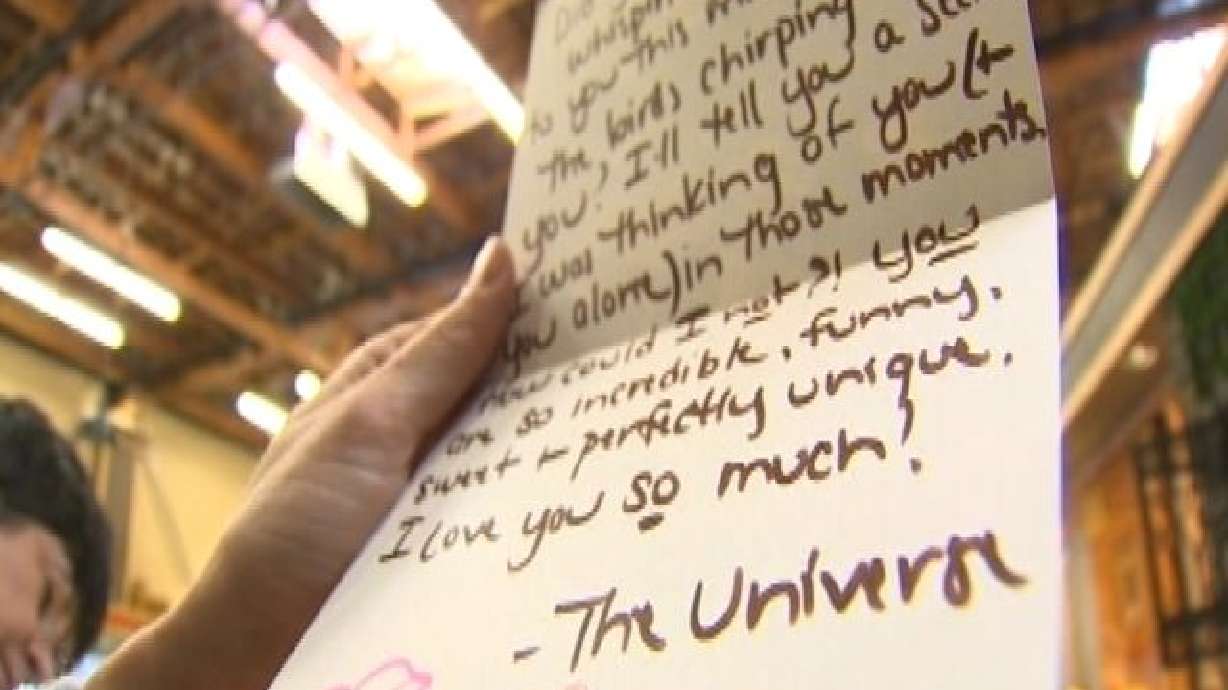 Did
to you this
the birds chirping
you? I'll tell you a
I was thinking of you (+
you alone) in those moments.
How could I not?! You
are so incredible, funny,
sweet + perfectly unique.
I love you so much!
- The Universe